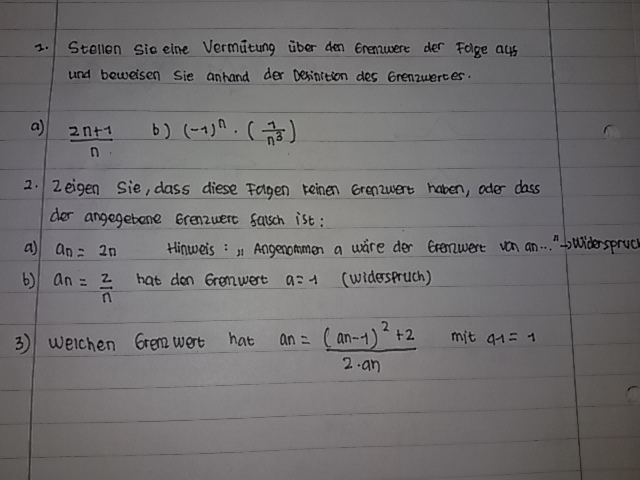 1. Stellen Sie eine Vermutung über den Grenzwert der Folge aus
und beweisen Sie anhand der Definition des Grenzwertes.
a) (2n+1)/n b) (-1)^n · (1/n^3)
2. Zeigen Sie, dass diese Folgen keinen Grenzwert haben, oder dass
der angegebene Grenzwert falsch ist:
a) an = 2n Hinweis: „Angenommen a wäre der Grenzwert von an..." → Widerspruch
b) an = 2/n hat den Grenzwert a=1 (Widerspruch)
3) Welchen Grenzwert hat an = ((an-1)^2+2)/(2·an) mit a1 = 1